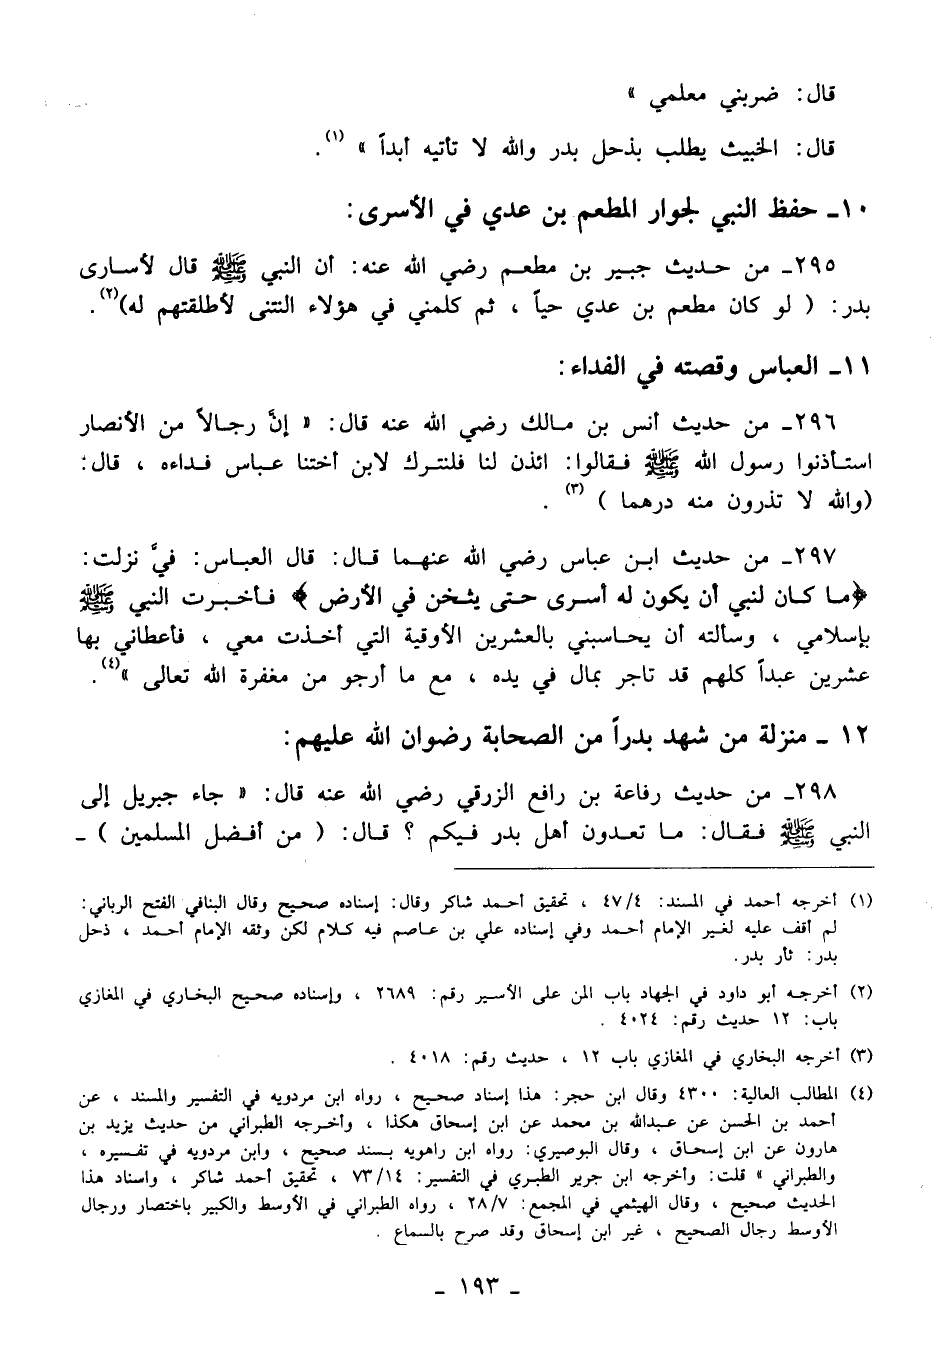 قال: ضربني معلمي »
قال: الخبيث يطلب بذحل بدر والله لا تأتيه أبداً » (١).
١٠- حفظ النبي لجوار المطعم بن عدي في الأسرى:
٢٩٥- من حديث جبير بن مطعم رضي الله عنه: أن النبي ﷺ قال لأسارى
بدر: ( لو كان مطعم بن عدي حياً ، ثم كلمني في هؤلاء النتنى لأطلقتهم له)(٢).
١١- العباس وقصته في الفداء:
٢٩٦- من حديث أنس بن مالك رضي الله عنه قال: « إنَّ رجالاً من الأنصار
استأذنوا رسول الله ﷺ فقالوا: ائذن لنا فلنترك لابن أختنا عباس فداءه ، قال:
(والله لا تذرون منه درهما ) (٣) .
٢٩٧- من حديث ابن عباس رضي الله عنهما قال: قال العباس: فيَّ نزلت:
﴿ما كان لنبي أن يكون له أسرى حتى يثخن في الأرض ﴾ فأخبرت النبي ﷺ
بإسلامي ، وسألته أن يحاسبني بالعشرين الأوقية التي أخذت معي ، فأعطاني بها
عشرين عبداً كلهم قد تاجر بمال في يده ، مع ما أرجو من مغفرة الله تعالى »(٤).
١٢ - منزلة من شهد بدراً من الصحابة رضوان الله عليهم:
٢٩٨- من حديث رفاعة بن رافع الزرقي رضي الله عنه قال: « جاء جبريل إلى
النبي ﷺ فقال: ما تعدون أهل بدر فيكم ؟ قال: ( من أفضل المسلمين ) -
(١) أخرجه أحمد في المسند: ٤٧/٤ ، تحقيق أحمد شاكر وقال: إسناده صحيح وقال البنافي الفتح الرباني:
لم أقف عليه لغير الإمام أحمد وفي إسناده علي بن عاصم فيه كلام لكن وثقه الإمام أحمد ، ذحل
بدر: ثأر بدر.
(٢) أخرجه أبو داود في الجهاد باب المن على الأسير رقم: ٢٦٨٩ ، وإسناده صحيح البخاري في المغازي
باب: ١٢ حديث رقم: ٤٠٢٤ .
(٣) أخرجه البخاري في المغازي باب ١٢ ، حديث رقم: ٤٠١٨ .
(٤) المطالب العالية: ٤٣٠٠ وقال ابن حجر: هذا إسناد صحيح ، رواه ابن مردويه في التفسير والمسند ، عن
أحمد بن الحسن عن عبدالله بن محمد عن ابن إسحاق هكذا ، وأخرجه الطبراني من حديث يزيد بن
هارون عن ابن إسحاق ، وقال البوصيري: رواه ابن راهويه بسند صحيح ، وابن مردويه في تفسيره ،
والطبراني » قلت: وأخرجه ابن جرير الطبري في التفسير: ٧٣/١٤ ، تحقيق أحمد شاكر ، واسناد هذا
الحديث صحيح ، وقال الهيثمي في المجمع: ٢٨/٧ ، رواه الطبراني في الأوسط والكبير باختصار ورجال
الأوسط رجال الصحيح ، غير ابن إسحاق وقد صرح بالسماع .
- ١٩٣ -